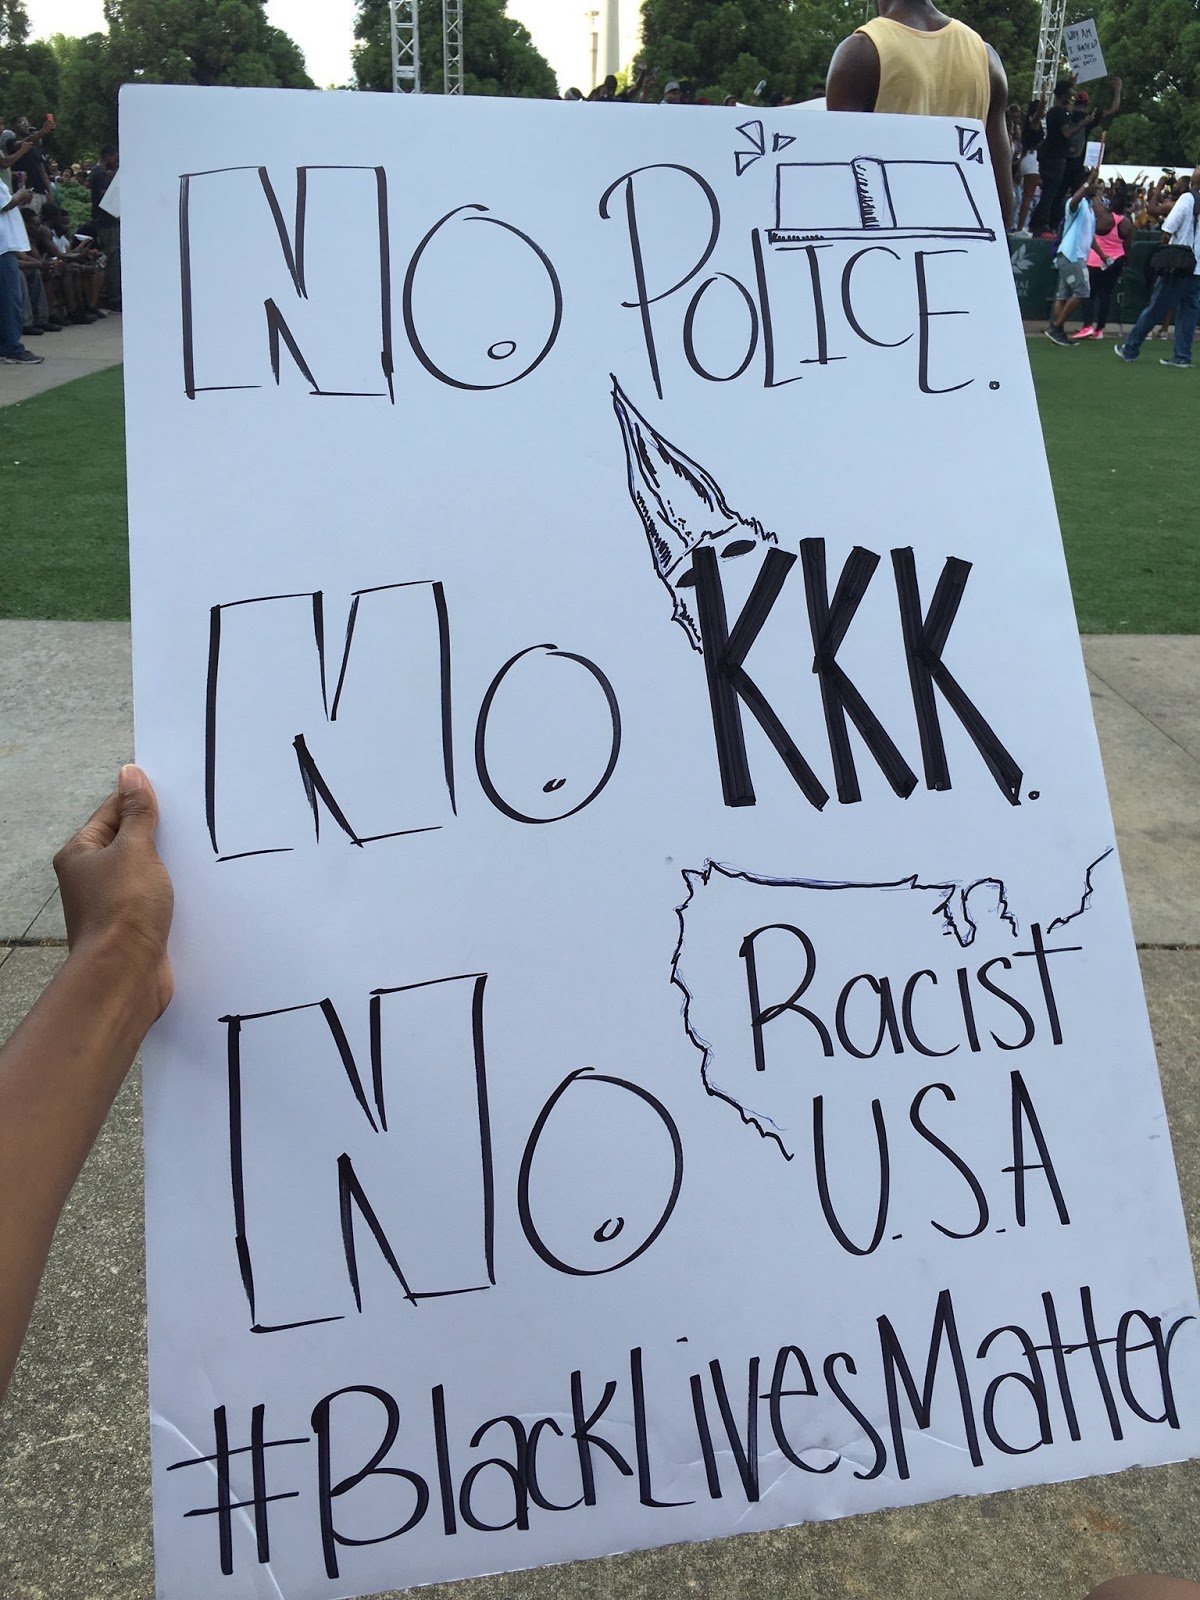 No Police.
No KKK.
No Racist
U.S.A
#BlackLivesMatter
WHY AM
I HATED?